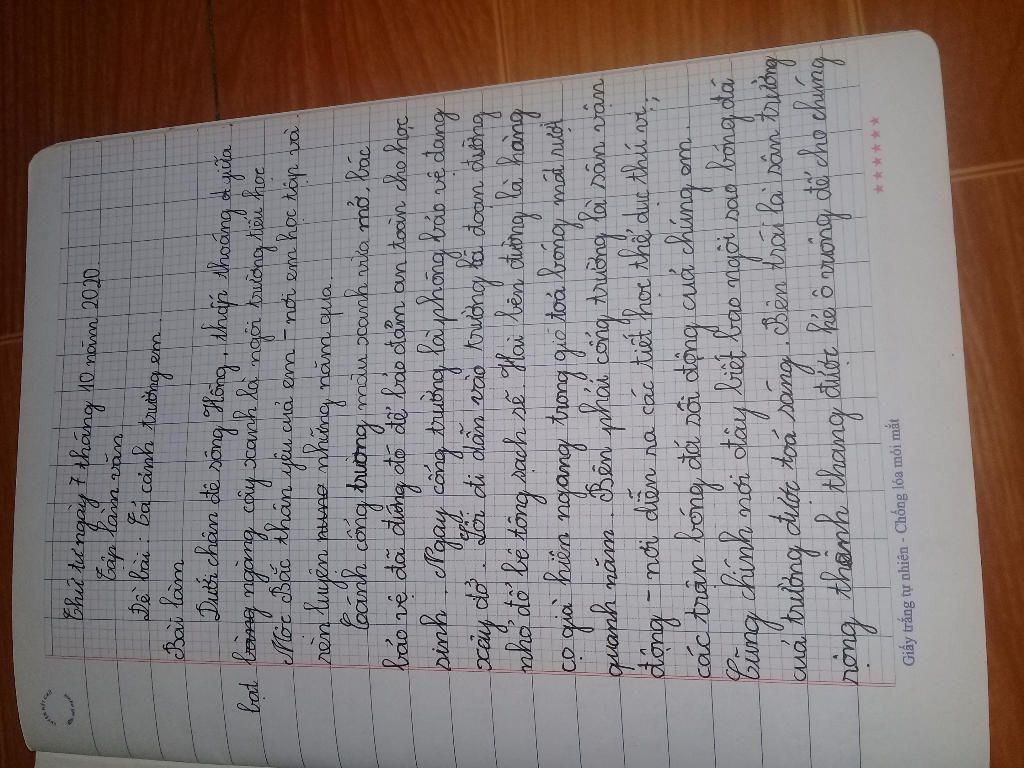 Thứ tư ngày 7 tháng 10 năm 2020
Tập làm văn
Đề bài : Tả cảnh trường em.
Bài làm
Dưới chân đê sông Hồng, thấp thoáng giữa
bạt ngàng cây xanh là ngôi trường tiểu học
Mốc Bắc thân yêu của em - nơi em học tập và
rèn luyện những năm qua.
Cánh cổng trường màu xanh vừa mở, bác
bảo vệ đã đứng đó để bảo đảm an toàn cho học
sinh. Ngay cổng trường là phòng bảo vệ đang
xây dở. Lối đi dẫn vào trường là đoạn đường
nhỏ, đổ bê tông sạch sẽ. Hai bên đường là hàng
cọ già hiên ngang trong gió toả bóng mát rượi
quanh năm. Bên phải cổng trường là sân vận
động - nơi diễn ra các tiết học thể dục thú vị,
các trận bóng đá sôi động của chúng em.
Cũng chính nơi đây biết bao ngôi sao bóng đá
của trường được toả sáng. Bên trái là sân trường
rộng thênh thang được kẻ ô vuông để cho chúng
Giấy trắng tự nhiên - Chống lóa mỏi mắt